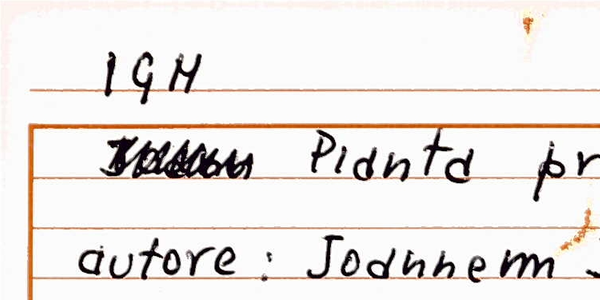 IGM
Pianta pr
autore: Joannem